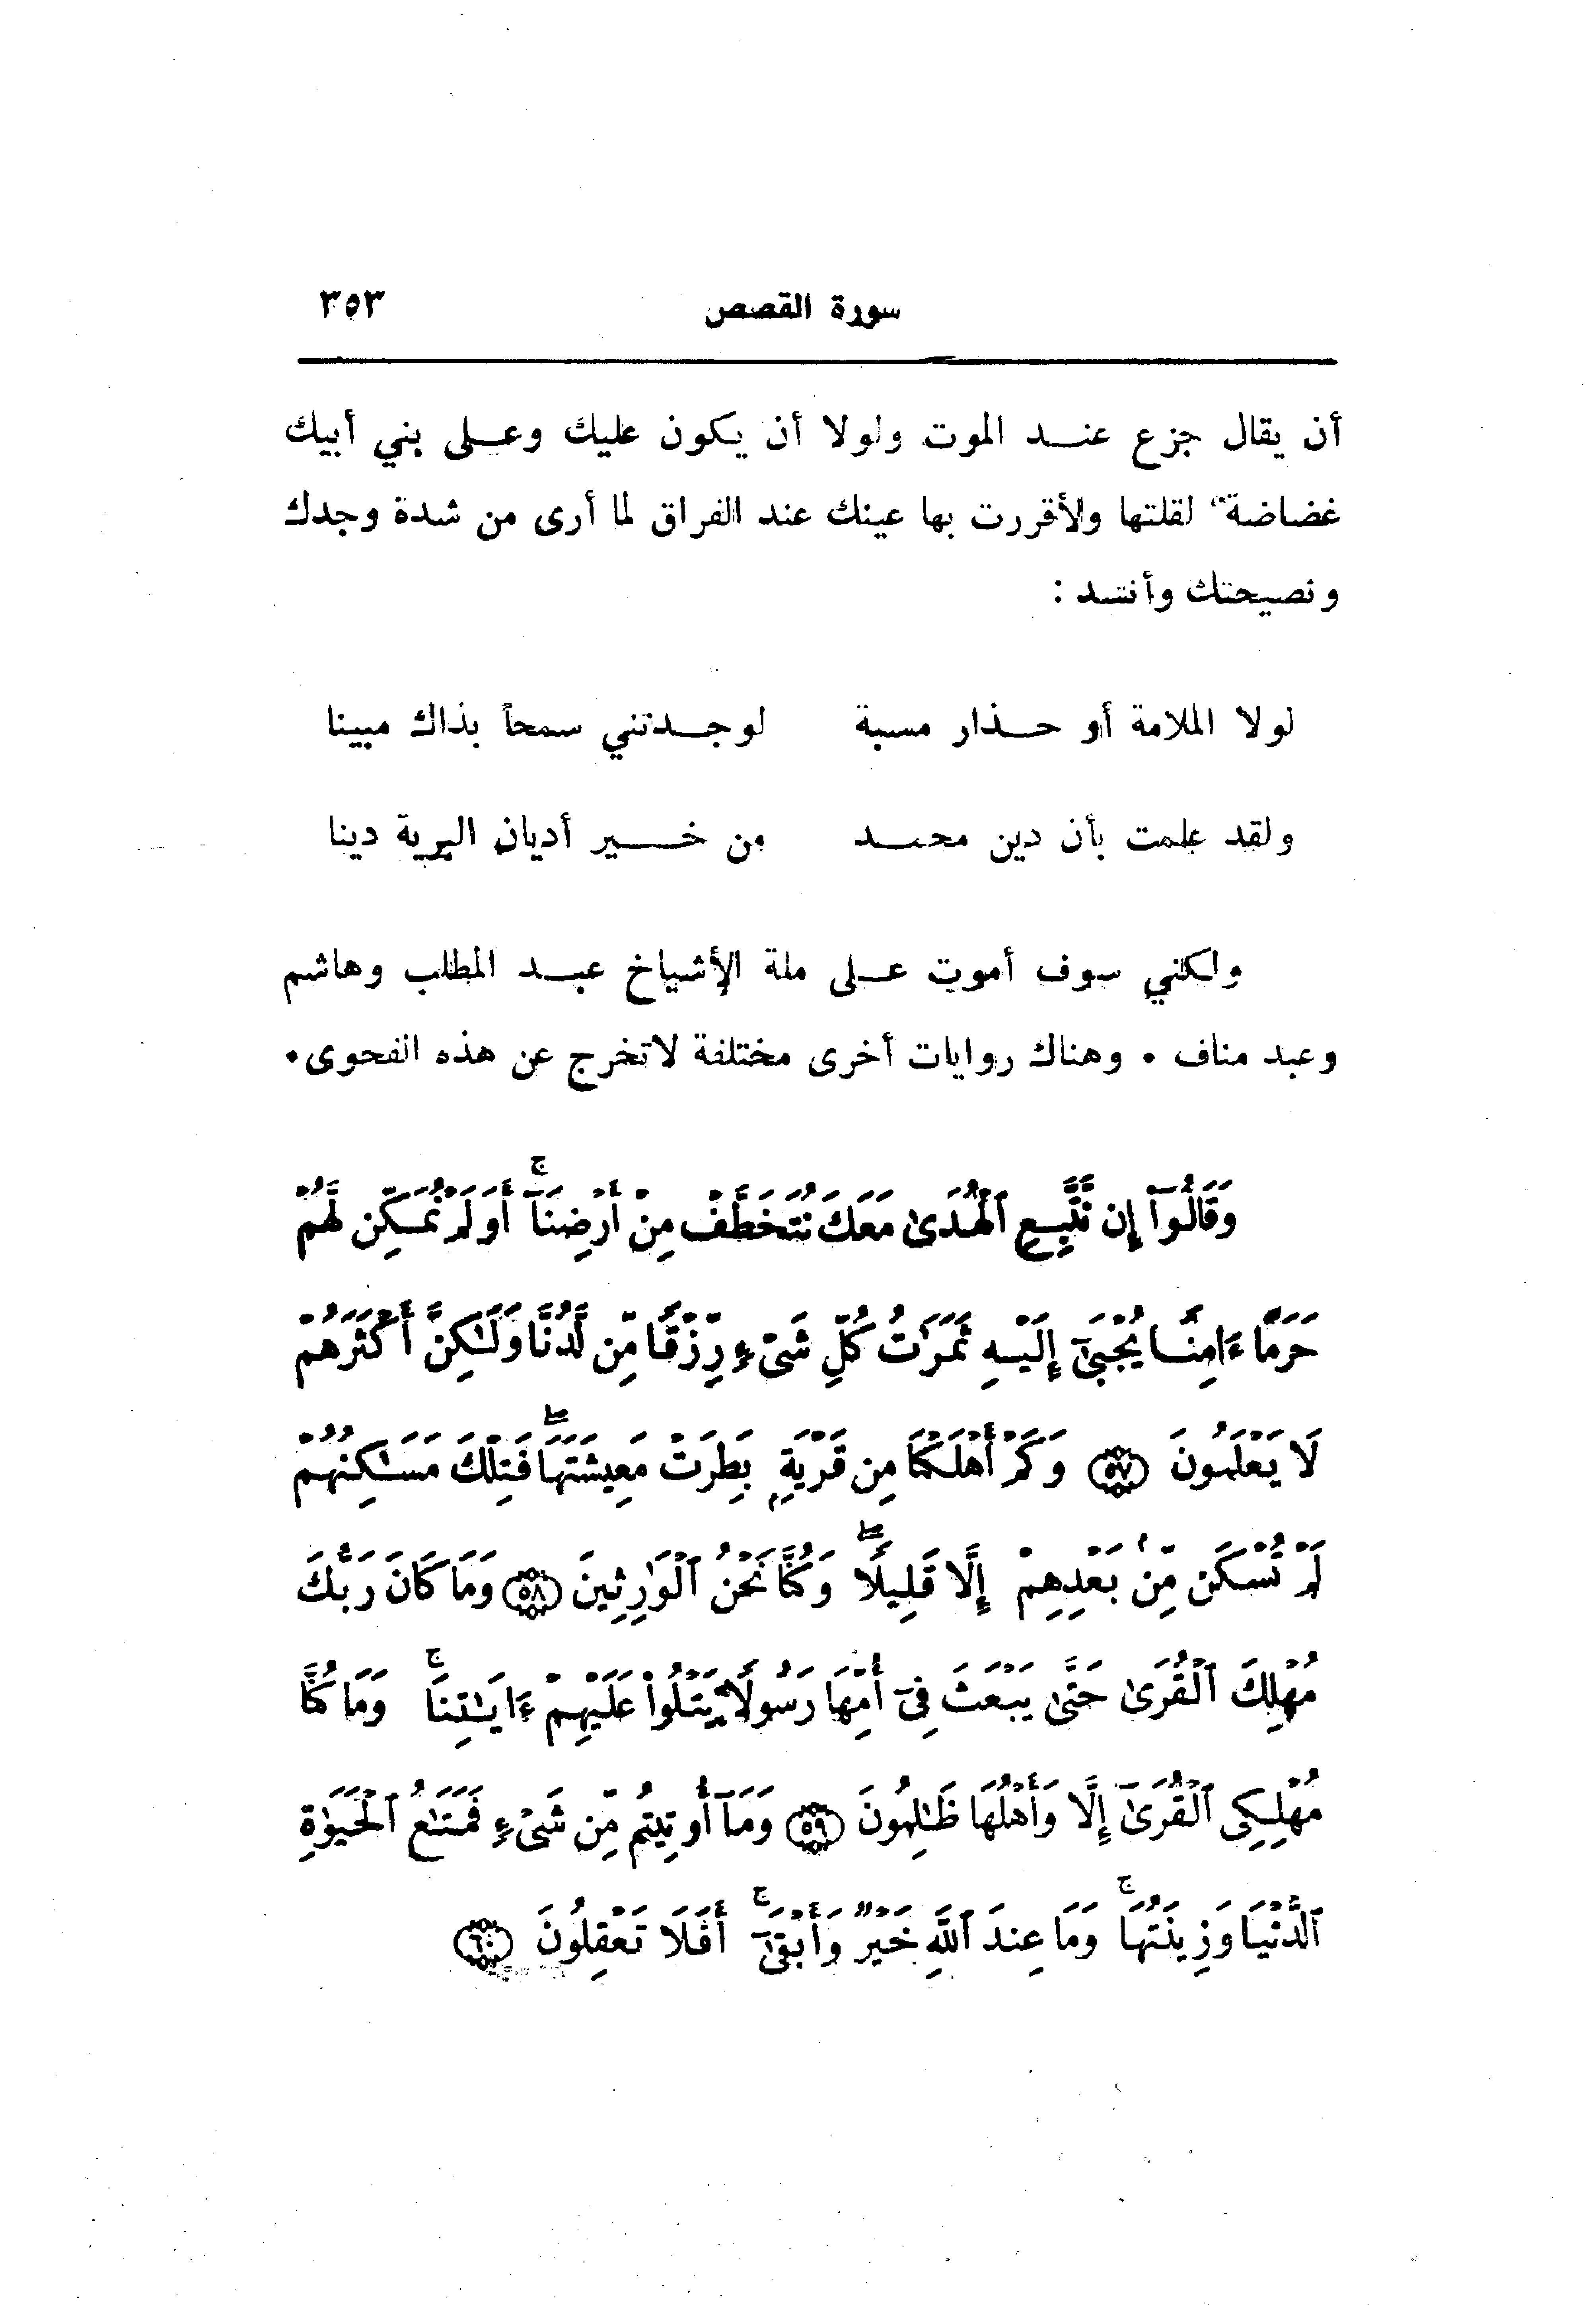 سورة القصص ٣٥٣
أن يقال جزع عند الموت ولولا أن يكون عليك وعلى بني أبيك
غضاضة لقلتها ولأقررت بها عينك عند الفراق لما أرى من شدة وجدك
ونصيحتك وأنشد :
لولا الملامة أو حذار مسبة لوجدتني سمحاً بذاك مبينا
ولقد علمت بأن دين محمد من خير أديان البرية دينا
ولكني سوف أموت على ملة الأشياخ عبد المطلب وهاشم
وعبد مناف ٠ وهناك روايات أخرى مختلفة لاتخرج عن هذه الفحوى ٠
وَقَالُوٓا۟ إِن نَّتَّبِعِ ٱلْهُدَىٰ مَعَكَ نُتَخَطَّفْ مِنْ أَرْضِنَآ ۚ أَوَلَمْ نُمَكِّن لَّهُمْ
حَرَمًا ءَامِنًا يُجْبَىٰٓ إِلَيْهِ ثَمَرَٰتُ كُلِّ شَىْءٍ رِّزْقًا مِّن لَّدُنَّا وَلَـٰكِنَّ أَكْثَرَهُمْ
لَا يَعْلَمُونَ ﴿٥٧﴾ وَكَمْ أَهْلَكْنَا مِن قَرْيَةٍۭ بَطِرَتْ مَعِيشَتَهَا ۖ فَتِلْكَ مَسَـٰكِنُهُمْ
لَمْ تُسْكَن مِّنۢ بَعْدِهِمْ إِلَّا قَلِيلًا ۖ وَكُنَّا نَحْنُ ٱلْوَٰرِثِينَ ﴿٥٨﴾ وَمَا كَانَ رَبُّكَ
مُهْلِكَ ٱلْقُرَىٰ حَتَّىٰ يَبْعَثَ فِىٓ أُمِّهَا رَسُولًا يَتْلُوا۟ عَلَيْهِمْ ءَايَـٰتِنَا ۚ وَمَا كُنَّا
مُهْلِكِى ٱلْقُرَىٰٓ إِلَّا وَأَهْلُهَا ظَـٰلِمُونَ ﴿٥٩﴾ وَمَآ أُوتِيتُم مِّن شَىْءٍ فَمَتَـٰعُ ٱلْحَيَوٰةِ
ٱلدُّنْيَا وَزِينَتُهَا ۚ وَمَا عِندَ ٱللَّهِ خَيْرٌ وَأَبْقَىٰٓ ۚ أَفَلَا تَعْقِلُونَ ﴿٦٠﴾